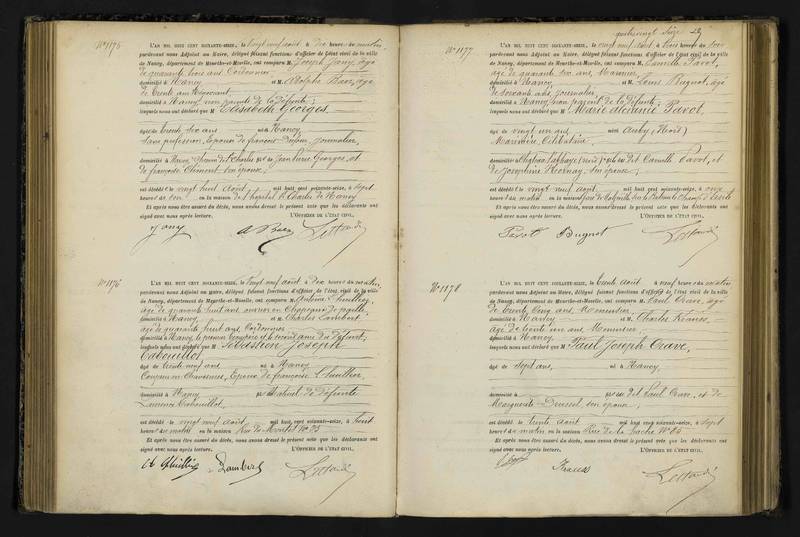 N° 1175
L'AN MIL HUIT CENT SOIXANTE-SEIZE, le vingt neuf août à dix heures du matin,
pardevant nous Adjoint au Maire, délégué faisant fonctions d'officier de l'état civil de la ville
de Nancy, département de Meurthe-et-Moselle, ont comparu M. Joseph Jony, âgé
de quarante trois ans Cordonnier
domicilié à Nancy et M. Adolphe Baer, âgé
de trente ans Négociant
domicilié à Nancy, non parents de la défunte;
lesquels nous ont déclaré que M Elisabeth Georges,
âgée de trente six ans née à Nancy
sans profession, Epouse de françois journalier,
domiciliée à Nancy St Charles fille de Jean Pierre Georges, et
de françoise Clément son épouse,
est décédée le vingt huit août mil huit cent soixante-seize, à sept
heures du soir en la maison de l'hôpital St Charles de Nancy
Et après nous être assuré du décès, nous avons dressé le présent acte que les déclarants ont
signé avec nous après lecture. L'OFFICIER DE L'ÉTAT CIVIL,
Jony A Baer
N° 1176
L'AN MIL HUIT CENT SOIXANTE-SEIZE, le vingt neuf août à dix heures du matin,
pardevant nous Adjoint au Maire, délégué faisant fonctions d'officier de l'état civil de la ville
de Nancy, département de Meurthe-et-Moselle, ont comparu M. Antoine Thuillier,
âgé de quarante huit ans ouvrier en Chapeaux de paille,
domicilié à Nancy et M. Charles Lambert
âgé de quarante huit ans Cordonnier
domicilié à Nancy, le premier
lesquels nous ont déclaré que M Sébastien Joseph
Cabouillot
âgé de trente neuf ans né à Nancy
Coupeur en Chaussures, Epoux de françoise Thuillier,
domicilié à Nancy fils naturel de défunte
Cabouillot,
est décédé le vingt neuf août mil huit cent soixante-seize, à huit
heures du matin en la maison Rue de N° 25
Et après nous être assuré du décès, nous avons dressé le présent acte que les déclarants ont
signé avec nous après lecture. L'OFFICIER DE L'ÉTAT CIVIL,
Thuillier Lambert
quatrevingt seize
N° 1177
L'AN MIL HUIT CENT SOIXANTE-SEIZE, le vingt neuf août à trois heures du soir
pardevant nous Adjoint au Maire, délégué faisant fonctions d'officier de l'état civil de la ville
de Nancy, département de Meurthe-et-Moselle, ont comparu M. Camille Pavot,
âgé de quarante six ans, Marinier,
domicilié à Nancy et M. Louis Bugnot, âgé
de soixante ans, journalier,
domicilié à Nancy, non parent de la défunte;
lesquels nous ont déclaré que M Marie Pavot,
âgée de vingt un ans née à Auby (Nord)
Marinière, Célibataire,
domiciliée à (Nord) fille de dit Camille Pavot, et
de Josephine son épouse;
est décédée le vingt neuf août mil huit cent soixante-seize, à onze
heures du matin en la maison
Et après nous être assuré du décès, nous avons dressé le présent acte que les déclarants ont
signé avec nous après lecture. L'OFFICIER DE L'ÉTAT CIVIL,
Pavot Bugnot
N° 1178
L'AN MIL HUIT CENT SOIXANTE-SEIZE, le trente août à neuf heures du matin
pardevant nous Adjoint au Maire, délégué faisant fonctions d'officier de l'état civil de la ville
de Nancy, département de Meurthe-et-Moselle, ont comparu M. Paul Crave, âgé
de trente cinq ans, Menuisier,
domicilié à Nancy et M. Charles Kraues,
âgé de trente un ans Menuisier,
domicilié à Nancy,
lesquels nous ont déclaré que M Paul Joseph Crave,
âgé de sept ans, né à Nancy,
domicilié à fils de dit Paul Crave, et de
Marguerite son épouse;
est décédé le trente août mil huit cent soixante-seize, à sept
heures du matin en la maison Rue de la Hache N° 85
Et après nous être assuré du décès, nous avons dressé le présent acte que les déclarants ont
signé avec nous après lecture. L'OFFICIER DE L'ÉTAT CIVIL,
Kraues